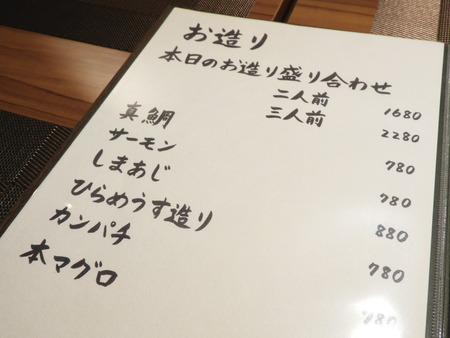 お造り
本日のお造り盛り合わせ
二人前 1680
三人前 2280
真鯛 780
サーモン 780
しまあじ 880
ひらめうす造り 780
カンパチ
本マグロ